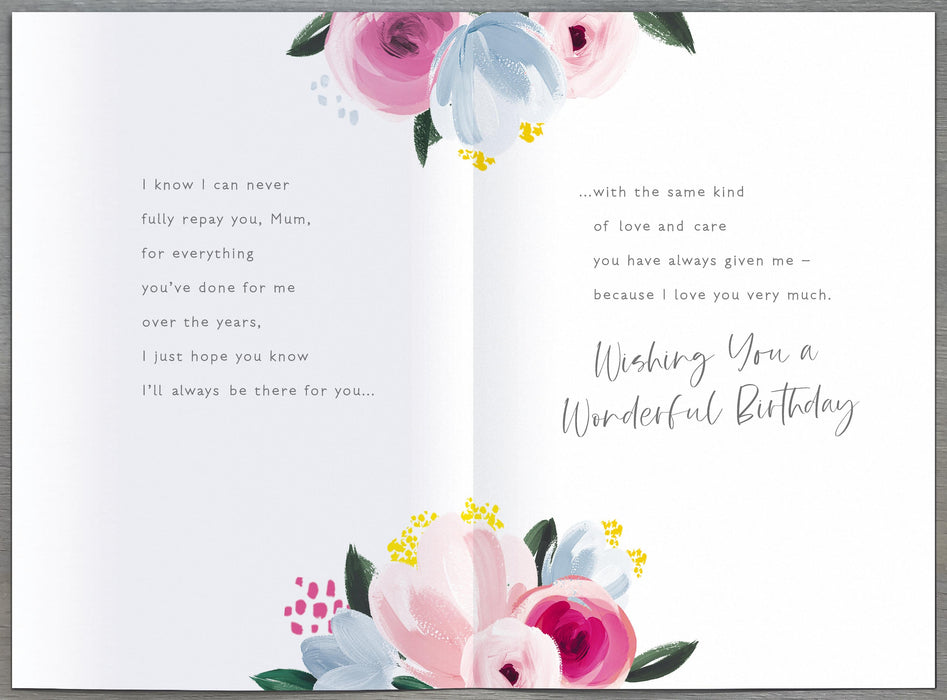 I know I can never
fully repay you, Mum,
for everything
you’ve done for me
over the years,
I just hope you know
I’ll always be there for you...
...with the same kind
of love and care
you have always given me –
because I love you very much.
Wishing You a
Wonderful Birthday